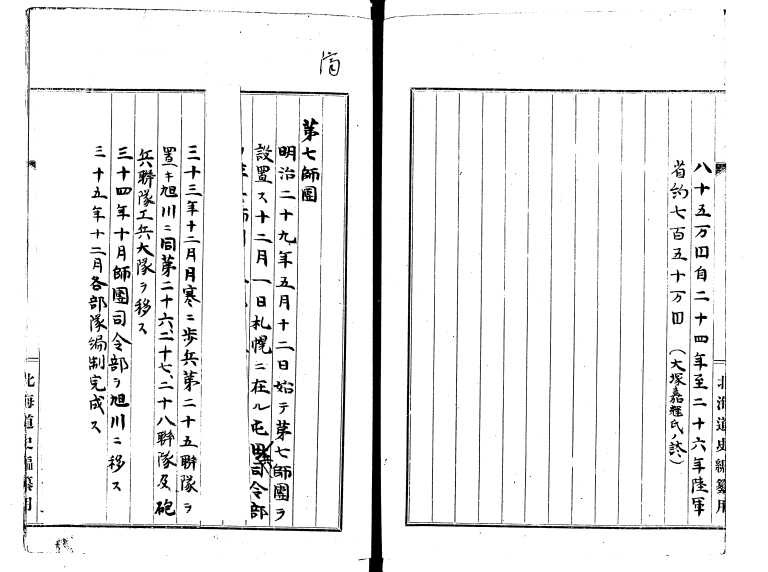 八十五万円自二十四年至二十六年陸軍
省約七百五十万円(大塚嘉 氏ノ談)
北海道史編纂用
第七師團
明治二十九年五月十二日始テ第七師團ヲ
設置ス十二月一日札幌ニ在ル屯田兵司令部
三十三年十二月月寒ニ歩兵第二十五聯隊ヲ
置キ旭川ニ同第二十六、二十七、二十八聯隊及砲
兵聯隊工兵大隊ヲ移ス
三十四年十月師團司令部ヲ旭川ニ移ス
三十五年十二月各部隊編制完成ス
北海道史編纂用